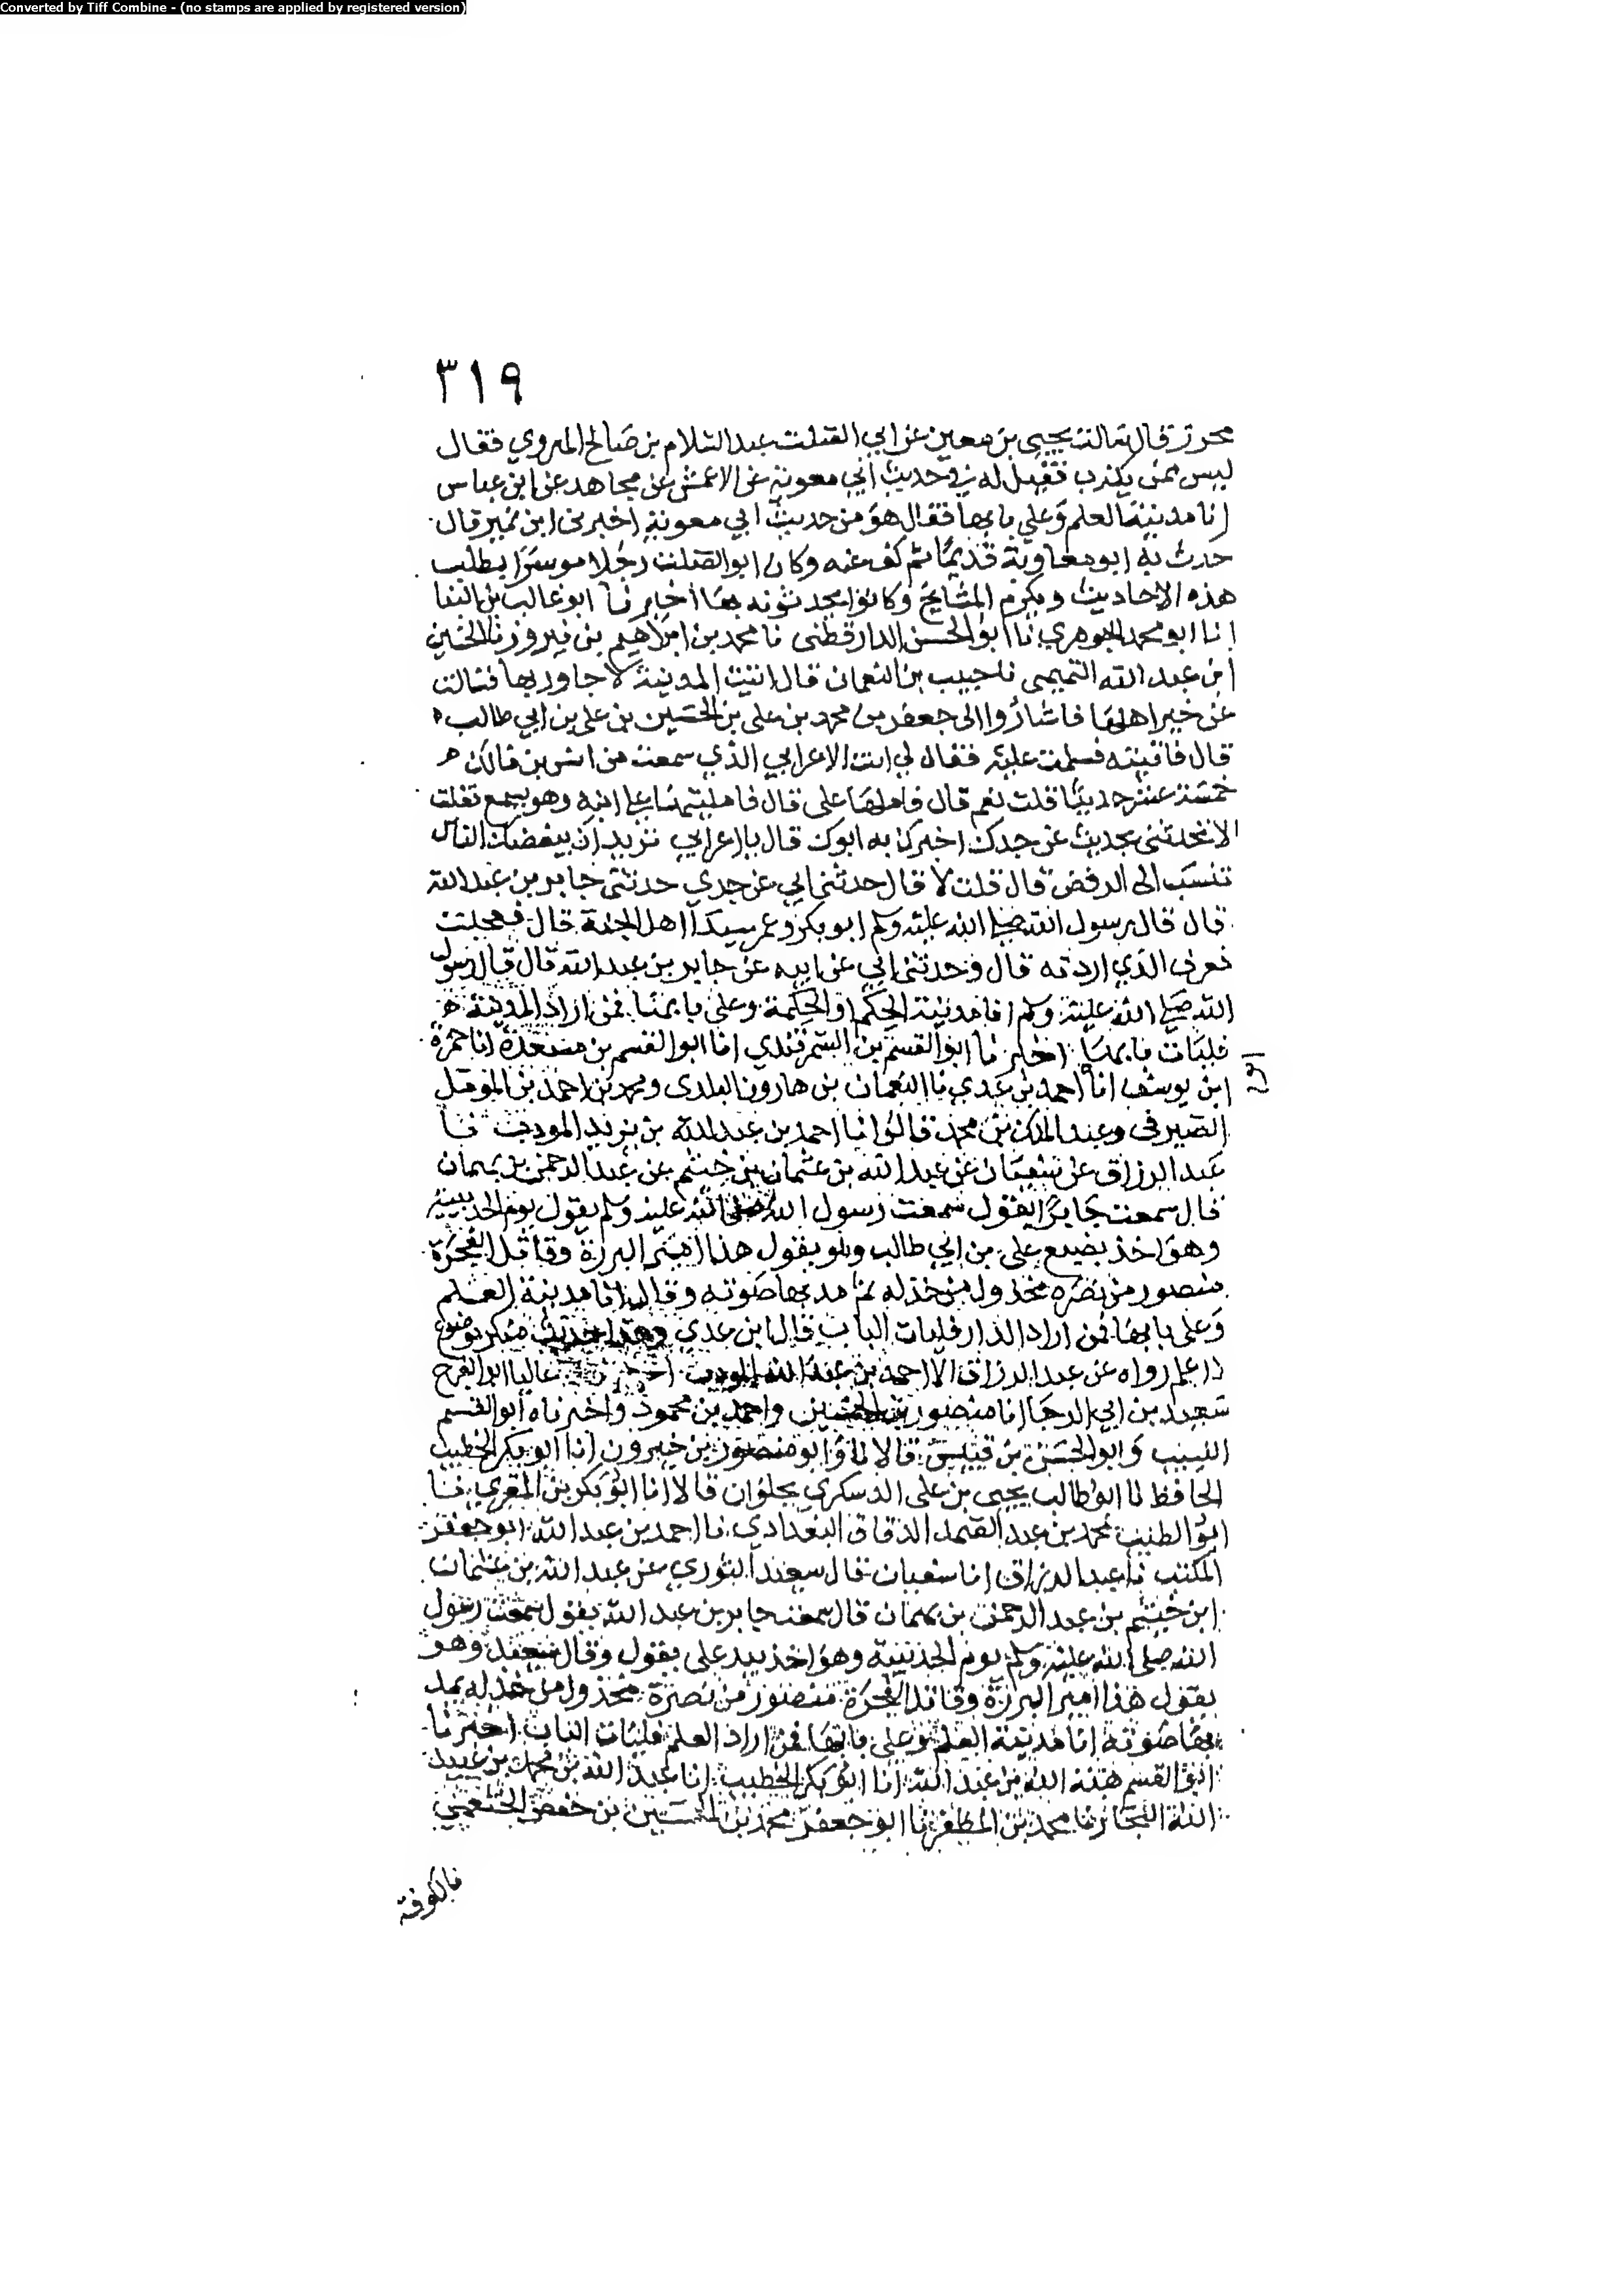 Converted by Tiff Combine - (no stamps are applied by registered version)
٣١٩
محرز قال سالت يحيى بن معين عن ابي الصلت عبد السلام بن صالح الهروي فقال
ليس ممن يكذب فقيل له في حديث ابي معوية عن الاعمش عن مجاهد عن ابن عباس
انا مدينة العلم وعلي بابها فقال هو من حديث ابي معوية اخبرني ابن نمير قال
حدث به ابو معاوية قديما ثم كف عنه وكان ابو الصلت رجلا موسرا يطلب
هذه الاحاديث ويكرم المشايخ وكانوا يحدثونه بها اخبرنا ابو غالب بن البنا
انا ابو محمد الجوهري نا ابو الحسن الدارقطني نا محمد بن ابراهيم بن فيروز نا الحسين
ابن عبد الله التميمي نا حبيب بن النعمان قال اتيت المدينة لاجاور بها فسالت
عن خير اهلها فاشاروا الى جعفر بن محمد بن علي بن الحسين بن علي بن ابي طالب
قال فاتيته فسلمت عليه فقال لي انت الاعرابي الذي سمعت من انس بن مالك
خمسة عشر حديثا قلت نعم قال فاملها علي قال فامليتها على ابنه وهو يسمع فقلت
الا تحدثني بحديث عن جدك اخبرك به ابوك قال يا اعرابي تريد ان يبغضك الناس
تنسب الى الرفض قال قلت لا قال حدثني ابي عن جدي حدثني جابر بن عبد الله
قال قال رسول الله صلى الله عليه وسلم ابو بكر وعمر سيدا اهل الجنة قال فعجلت
فعرف الذي اردته قال وحدثني ابي عن ابيه عن جابر بن عبد الله قال قال رسول
الله صلى الله عليه وسلم انا مدينة الحكم او الحكمة وعلي بابها فمن اراد المدينة
فليات بابها اخبرنا ابو القسم بن السمرقندي انا ابو القسم بن مسعدة انا حمزة
ابن يوسف انا احمد بن عدي نا النعمان بن هارون البلدي ومحمد بن احمد بن المومل
الصيرفي وعبد الملك بن محمد قالوا نا احمد بن عبد الله بن يزيد المودب نا
عبد الرزاق عن سفيان عن عبد الله بن عثمان بن خثيم عن عبد الرحمن بن بهمان
قال سمعت جابرا يقول سمعت رسول الله صلى الله عليه وسلم يقول يوم الحديبية
وهو اخذ بضبع علي بن ابي طالب وهو يقول هذا امير البررة وقاتل الفجرة
منصور من نصره مخذول من خذله ثم مد بها صوته وقال انا مدينة العلم
وعلي بابها فمن اراد الدار فليات الباب قال ابن عدي وهذا حديث منكر موضوع
لا اعلم رواه عن عبد الرزاق الا احمد بن عبد الله المودب عاليا ابو الفرج
سعيد بن ابي الرجا انا منصور بن الحسين واحمد بن محمود واخبرناه ابو القسم
النسيب وابو الحسن بن قبيس قالا نا وابو منصور بن خيرون انا ابو بكر الخطيب
الحافظ نا ابو طالب يحيى بن علي الدسكري بحلوان قالا انا ابو بكر بن المقري نا
ابو الطيب محمد بن عبد الصمد الدقاق البغدادي نا احمد بن عبد الله ابو جعفر
المكتب نا عبد الرزاق انا سفيان قال سعيد الثوري عن عبد الله بن عثمان
ابن خثيم بن عبد الرحمن بن بهمان قال سمعت جابر بن عبد الله يقول سمعت رسول
الله صلى الله عليه وسلم يوم الحديبية وهو اخذ بيد علي يقول وقال وهو
يقول هذا امير البررة وقاتل الفجرة منصور من نصره مخذول من خذله يمد
بها صوته انا مدينة العلم وعلي بابها فمن اراد العلم فليات الباب اخبرنا
ابو القسم هبة الله بن عبد الله انا ابو بكر الخطيب انا عبد الله بن محمد بن عبيد
الله النجار نا محمد بن المظفر نا ابو جعفر محمد بن الحسين بن حفص الخثعمي
بالكوفة